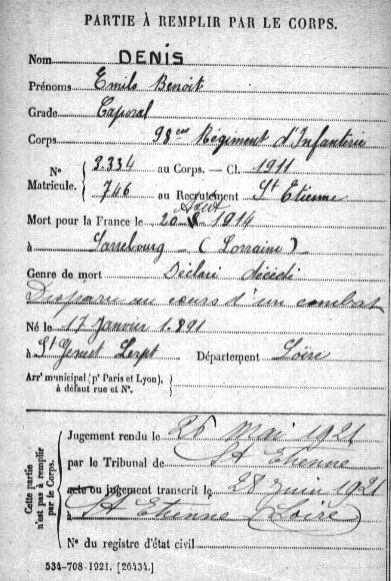 PARTIE À REMPLIR PAR LE CORPS.
Nom DENIS
Prénoms Emile Benoit
Grade Caporal
Corps 98eme Régiment d'Infanterie
N° Matricule. { 3.334 au Corps. — Cl. 1911
746 au Recrutement St Etienne
Mort pour la France le 20 Août 1914
à Sarrebourg (Lorraine)
Genre de mort Déclaré décédé
Disparu au cours d'un combat
Né le 17 Janvier 1.891
à St Genest Lerpt Département Loire
Arrt municipal (pr Paris et Lyon), à défaut rue et N°.
Cette partie n'est pas à remplir par le Corps.
Jugement rendu le 25 Mai 1921
par le Tribunal de St Etienne
acte ou jugement transcrit le 28 Juin 1921
à St Etienne (Loire)
N° du registre d'état civil
534-708-1921. [26434.]